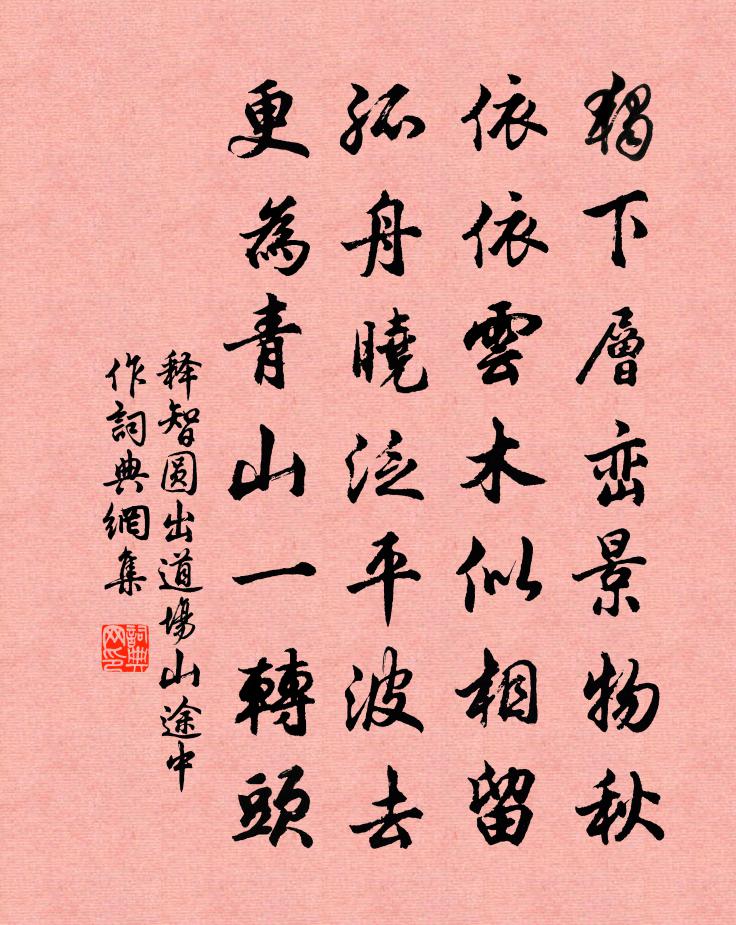 獨下層峦景物秋
依依雲木似相留
孤舟曉泛平波去
更為青山一轉頭
释智圆出道場山途中
作詞典網集
詞典網印